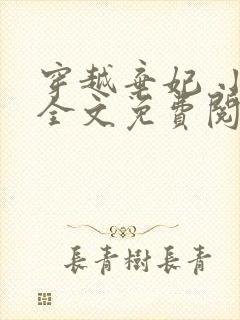 穿越弃妃 小
全文免費閱
長青樹長青